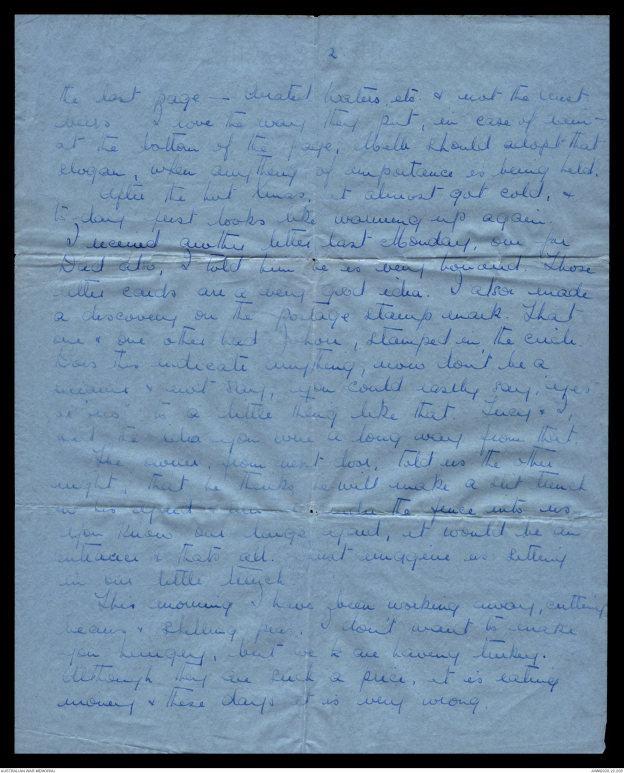 2
the last page — Aerated Waters, etc. & not the least
beers & love the way they put, in case of rain —
at the bottom of the page, Melb should adopt that
slogan, when anything of importance is being held.
After the hot times, it almost got cold, &
to-day just looks like warming up again.
I received another letter last Monday, one for
Dad also, I told him he is very honoured. Those
letter cards are a very good idea. I also made
a discovery on the postage stamp mark. That
one & one other had Johore, stamped in, the circle.
Does this indicate anything, now don't be a
meanie & not say, you could easily say, "yes"
or "no" to a little thing like that. Lucy & I,
had the idea you were a long way from that.
The owner, from next door, told us the other
night, that he thinks he will make a slit trench
in his yard & under the fence into us
you know our large yard, it would be an
& thats all. Just imagine us sitting
in our little trench
This morning I have been working away, cutting
beans & shelling peas. I don't want to make
you hungry, but we are having turkey.
Although they are such a price, it is eating
money & these days it is very wrong.
AUSTRALIAN WAR MEMORIAL